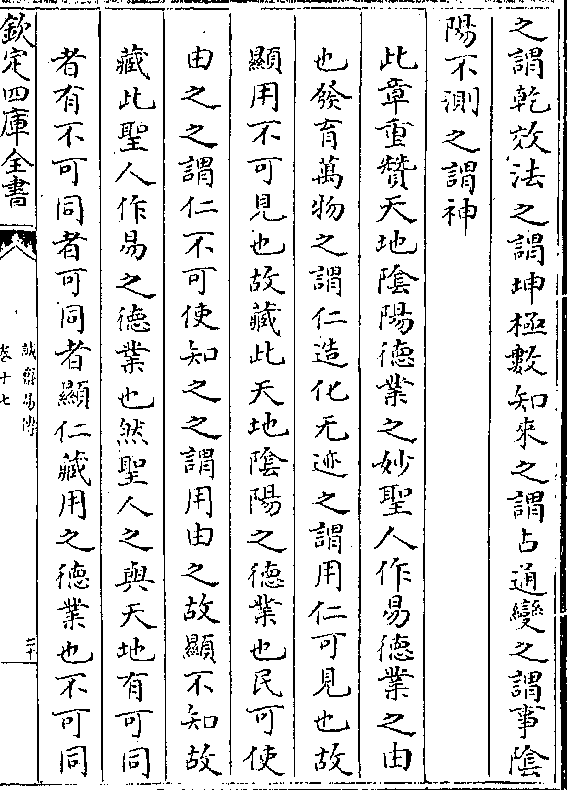 之謂乾效法之謂坤極數知來之謂占通變之謂事陰
陽不測之謂神
此章重贊天地陰陽德業之妙聖人作易德業之由
也發育萬物之謂仁造化无迹之謂用仁可見也故
顯用不可見也故藏此天地陰陽之德業也民可使
由之之謂仁不可使知之之謂用由之故顯不知故
藏此聖人作易之德業也然聖人之與天地有可同
者有不可同者可同者顯仁藏用之德業也不可同
欽定四庫全書
誠齋易傳
卷十七
二十